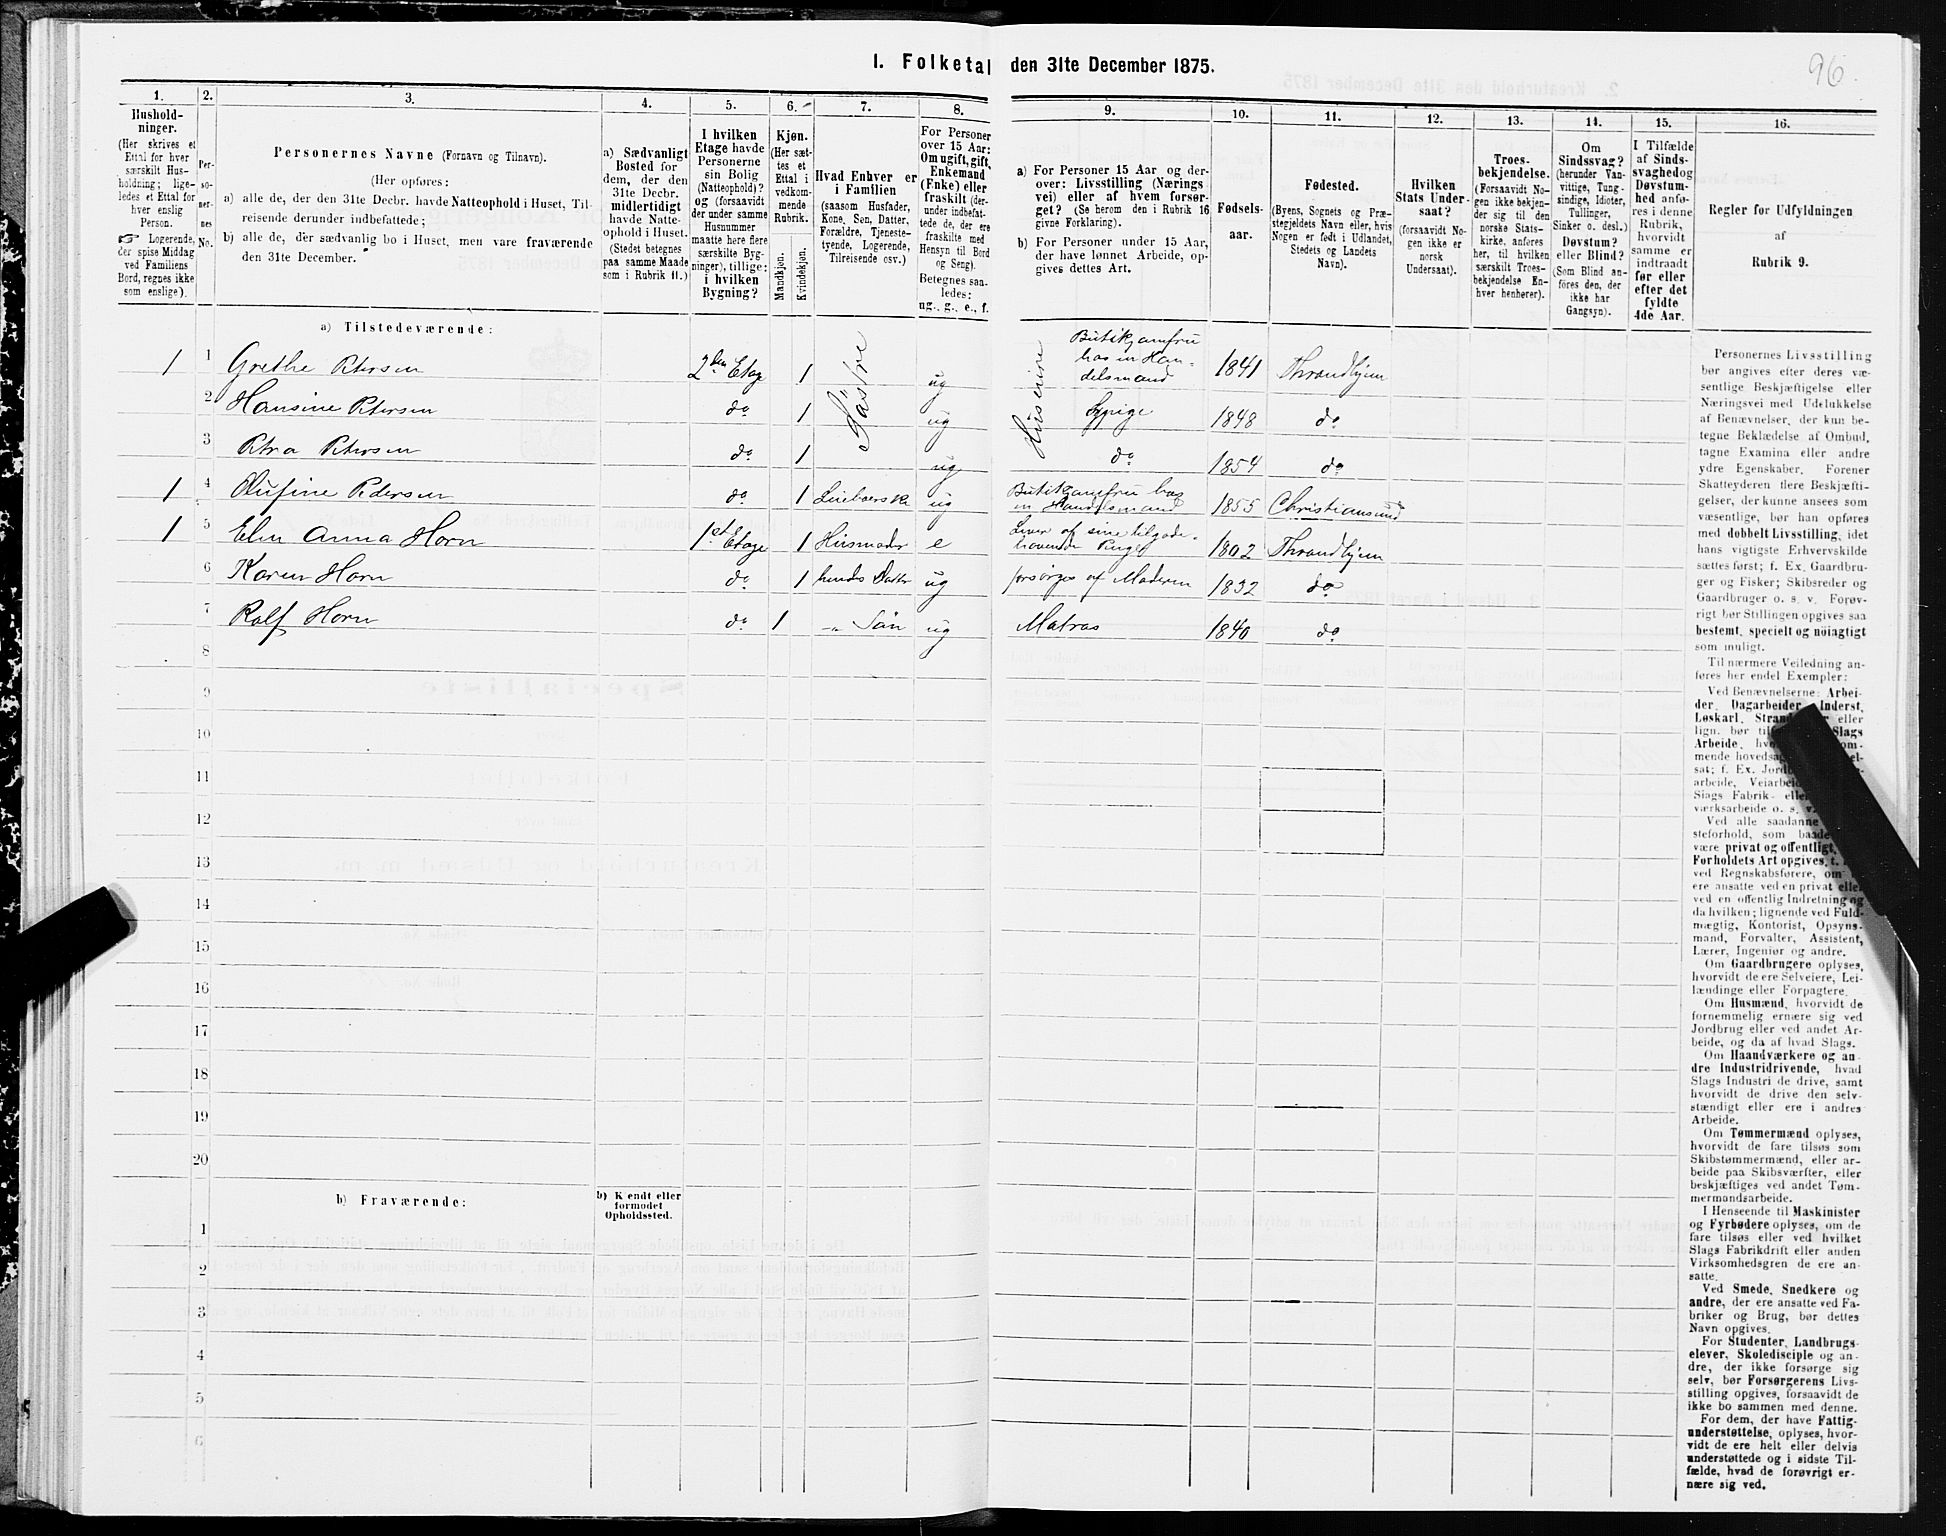 1. Folketal den 31te December 1875.
96.
1.
Hushold-
ninger.
(Her skrives et
Ettal for hver
særskilt Hus-
holdning; lige-
ledes et Ettal for
hver enslig
Person.
☞ Logerende,
der spise Middag
ved Familiens
Bord, regnes ikke
som enslige).
2.
Per-
so-
ner-
nes
No.
3.
Personernes Navne (Fornavn og Tilnavn).
(Her opføres:
a) alle de, der den 31te Decbr. havde Natteophold i Huset, Til-
reisende derunder indbefattede;
b) alle de, der sædvanlig bo i Huset, men vare fraværende
den 31te December.
4.
a) Sædvanligt
Bosted for
dem, der den
31te Decbr.
midlertidigt
havde Natte-
ophold i Huset.
(Stedet betegnes
paa samme Maade
som i Rubrik 11.)
5.
I hvilken
Etage havde
Personerne
sin Bolig
(Natteophold)?
og (forsaavidt
der under samme
Husnummer
maatte høre flere
særskilte Byg-
ninger), tillige:
i hvilken
Bygning?
6.
Kjøn.
(Her sæt-
tes et
Ettal i
vedkom-
mende
Rubrik.
Mandkjøn.
Kvindekjøn.
7.
Hvad Enhver er
i Familien
(saasom Husfader,
Kone, Søn, Datter,
Forældre, Tjeneste-
tyende, Logerende,
Tilreisende osv.)
8.
For Personer
over 15 Aar:
Om ugift, gift,
Enkemand
(Enke) eller
fraskilt (der-
under indbefat-
tede de, der ere
fraskilte med
Hensyn til Bord
og Seng).
Betegnes saa-
ledes:
ug., g., e., f.
9.
a) For Personer 15 Aar og der-
over: Livsstilling (Nærings-
vei) eller af hvem forsør-
get? (Se herom den i Rubrik 16
givne Forklaring).
b) For Personer under 15 Aar,
der have lønnet Arbeide, op-
gives dettes Art.
10.
Fødsels-
aar.
11.
Fødested.
(Byens, Sognets og Præ-
stegjeldets Navn eller, hvis
Nogen er født i Udlandet,
Stedets og Landets
Navn).
12.
Hvilken
Stats Under-
saat?
(forsaavidt No-
gen ikke er
norsk
Undersaat).
13.
Troes-
bekjendelse.
(Forsaavidt No-
gen ikke bekjen-
der sig til den
norske Stats-
kirke, anføres
her, til hvilken
særskilt Troes-
bekjendelse En-
hver henhører).
14.
Om
Sindssvag?
(herunder Van-
vittige, Tung-
sindige, Idioter,
Tullinger,
Sinker o. desl.)
Døvstum?
eller Blind?
(Som Blind an-
føres den, der
ikke har
Gangsyn).
15.
I Tilfælde
af Sinds-
svaghed og
Døvstum-
hed anfø-
res i denne
Rubrik,
hvorvidt
samme er
indtraadt
før eller
efter det
fyldte
4de Aar.
16.
Regler for Udfyldningen
af
Rubrik 9.
a) Tilstedeværende:
1 1 Grethe Petersen 2den Etage 1 Søstre ug Husleiere Butikjomfru hos en Han-delsmand 1841 Throndhjem
2 Hansine Petersen do 1 ug Sypige 1848 do
3 Petra Petersen do 1 ug do 1854 do
1 4 Olufine Pedersen do 1 ug Butikjomfru hos en Handelsmand 1855 Christiansund
1 5 Elen Anna Horn 1st Etage 1 Husmoder e Lever af sine tilgode-havende Penge 1802 Throndhjem
6 Karen Horn do 1 hendes Datter ug forsørges af Moderen 1832 do
7 Rolf Horn do 1 -„- Søn ug Matros 1840 do
8
9
10
11
12
13
14
15
16
17
18
19
20
b) Fraværende:
b) Kjendt eller
formodet
Opholdssted.
1
2
3
4
5
6
Personernes Livsstilling
bør angives efter deres væ-
sentlige Beskjæftigelse eller
Næringsvei med Udelukkelse
af Benævnelser, der kun be-
tegne Beklædelse af Ombud,
tagne Examina eller andre
ydre Egenskaber. Forener
Skatteyderen flere Beskjæfti-
gelser, der kunne ansees som
væsentlige, bør han opføres
med dobbelt Livsstilling, idet
hans vigtigste Erhvervskilde
sættes først; f. Ex. Gaardbru-
ger og Fisker; Skibsreder og
Gaardbruger o. s. v. Forøv-
rigt bør Stillingen opgives saa
bestemt, specielt og nøiagtigt
som muligt.
Til nærmere Veiledning an-
føres her endel Exempler:
Ved Benævnelserne: Arbei-
der, Dagarbeider, Inderst,
Løskarl, eller
lign. bør Slags
Arbeide,
mende
sat; f. Ex.
arbeide,
Slags Fabrik-
værksarbeide o. s. v.
Ved alle saadanne
steforhold, som baade
være privat og offentligt,
Forholdets Art opgives,
ved Regnskabsførere, om
ere ansatte ved en privat eller
ved en offentlig Indretning og
da hvilken; lignende ved Fuld-
mægtig, Kontorist, Opsyns-
mand, Forvalter, Assistent,
Lærer, Ingeniør og andre.
Om Gaardbrugere oplyses,
hvorvidt de ere Selveiere, Lei-
lændinge eller Forpagtere.
Om Husmænd, hvorvidt de
fornemmelig ernære sig ved
Jordbrug eller ved andet Ar-
beide, og da af hvad Slags.
Om Haandværkere og an-
dre Industridrivende, hvad
Slags Industri de drive, samt
hvorvidt de drive den selv-
stændigt eller ere i andres
Arbeide.
Om Tømmermænd oplyses,
hvorvidt de fare tilsøs som
Skibstømmermænd, eller ar-
beide paa Skibsværfter, eller
beskjæftiges ved andet Tøm-
mermandsarbeide.
I Henseende til Maskinister
og Fyrbødere oplyses, om de
fare tilsøs eller ved hvilket
Slags Fabrikdrift eller anden
Virksomhedsgren de ere an-
satte.
Ved Smede, Snedkere og
andre, der ere ansatte ved Fa-
briker og Brug, bør dettes
Navn opgives.
For Studenter, Landbrugs-
elever, Skoledisciple og an-
dre, der ikke forsørge sig
selv, bør Forsørgerens Livs-
stilling opgives, forsaavidt de
ikke bo sammen med denne.
For dem, der have Fattig-
understøttelse, oplyses, hvor-
vidt de ere helt eller delvis
understøttede og i sidste Til-
fælde, hvad de forøvrigt er-
nære sig ved.